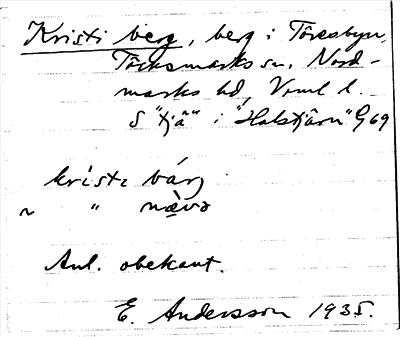 Kristi berg, berg i Töresbyn,
Töcksmarks sn, Nord-
marks hd, Vrml l.
S "tjä" i "Halstjärn" G69
kristi bärj
~ " nävə
Anl. obekant.
E. Andersson 1935.